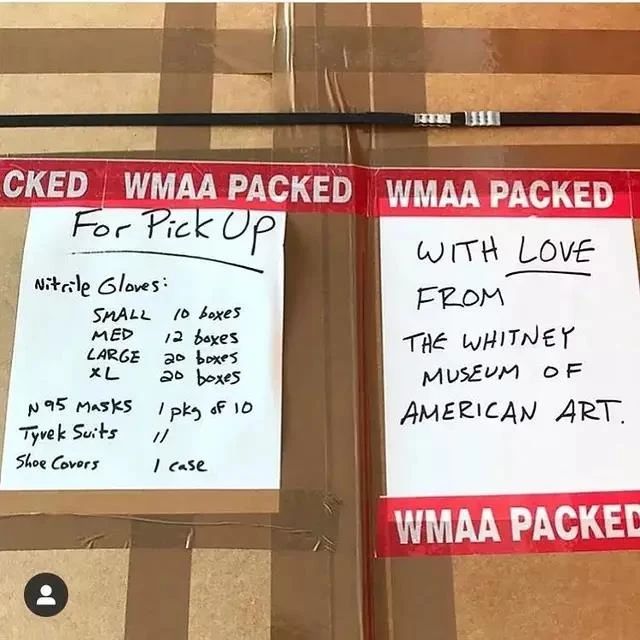 CKED WMAA PACKED
For Pick Up
Nitrile Gloves:
SMALL 10 boxes
MED 12 boxes
LARGE 20 boxes
XL 20 boxes
N95 Masks 1 pkg of 10
Tyvek Suits 11
Shoe Covers 1 case
WMAA PACKED
WITH LOVE
FROM
THE WHITNEY
MUSEUM OF
AMERICAN ART.
WMAA PACKED